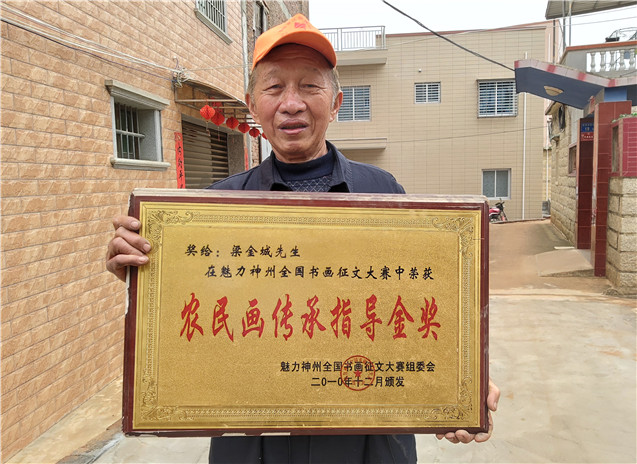 奖给：梁金城先生
在魅力神州全国书画征文大赛中荣获
农民画传承指导金奖
魅力神州全国书画征文大赛组委会
二0一0年十二月颁发